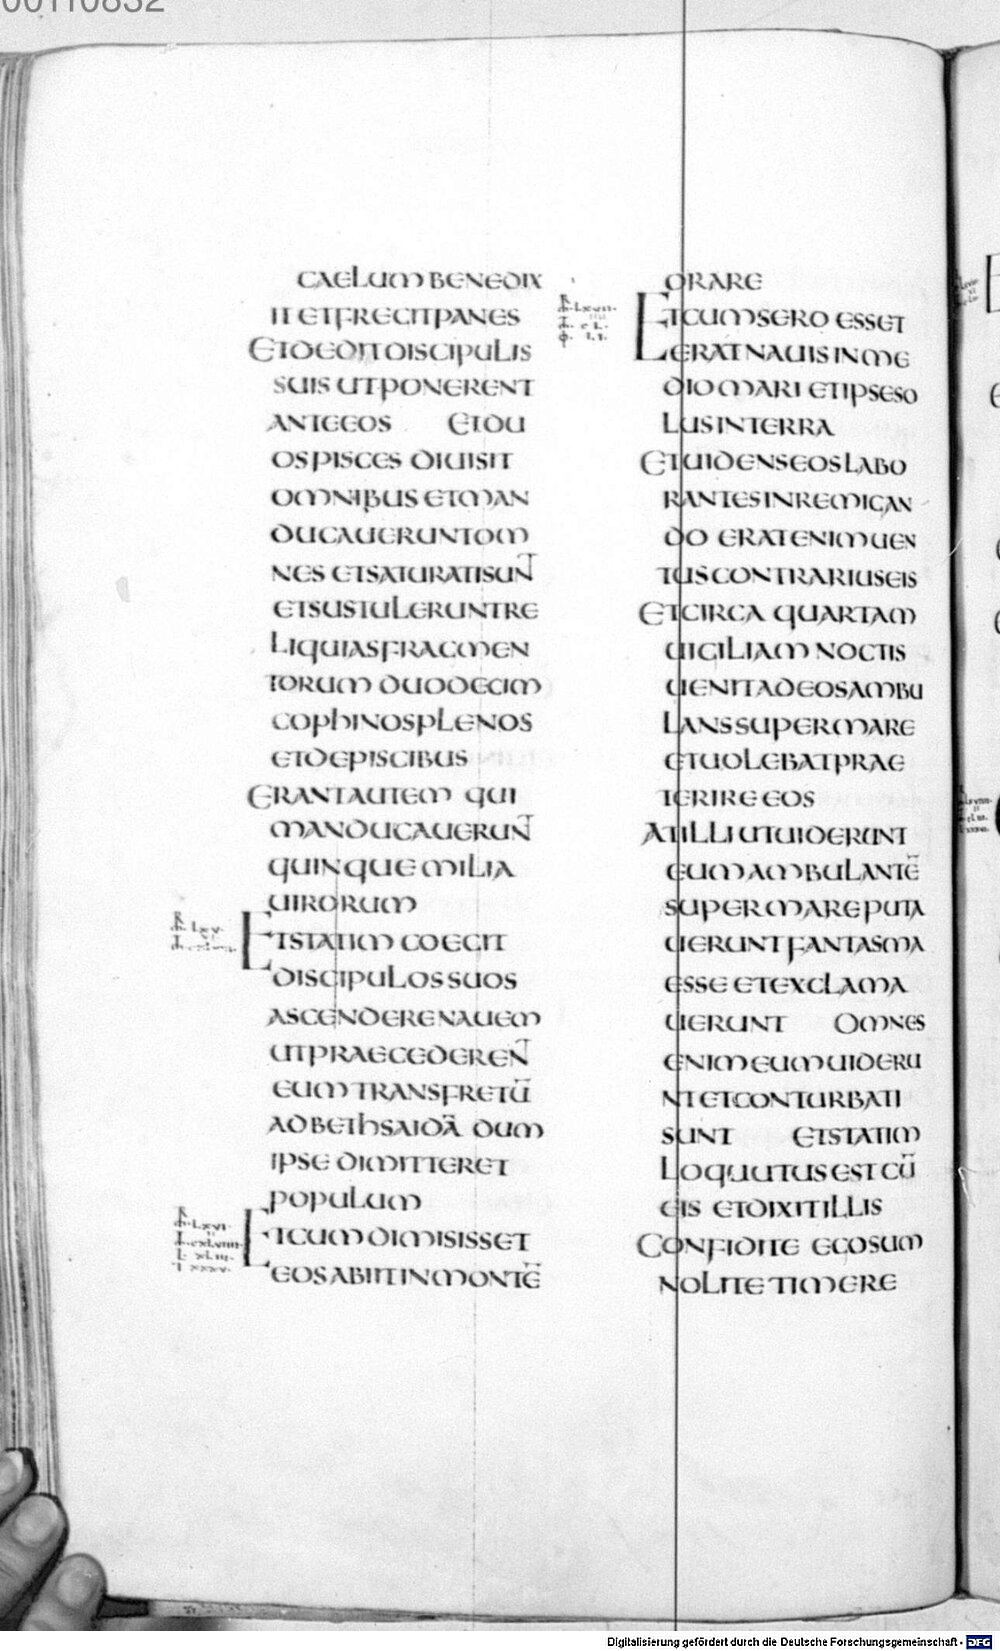 00110832
CAELUM BENEDIX
IT ET FREGIT PANES
ET DEDIT DISCIPULIS
SUIS UT PONERENT
ANTE EOS ET DU
OS PISCES DIUISIT
OMNIBUS ET MAN
DUCAUERUNT OM
NES ET SATURATI SUN̄
ET SUSTULERUNT RE
LIQUIAS FRAGMEN
TORUM DUODECIM
COPHINOS PLENOS
ET DE PISCIBUS
ERANT AUTEM QUI
MANDUCAUERUN̄
QUINQUE MILIA
UIRORUM
ET STATIM COEGIT
DISCIPULOS SUOS
ASCENDERE NAUEM
UT PRAECEDEREN̄
EUM TRANS FRETŪ
AD BETHSAIDĀ DUM
IPSE DIMITTERET
POPULUM
LXVI
ET CUM DIMISISSET
EOS ABIIT IN MONTĒ
ORARE
LXVII
ET CUM SERO ESSET
ERAT NAUIS IN ME
DIO MARI ET IPSE SO
LUS IN TERRA
ET UIDENS EOS LABO
RANTES IN REMIGAN
DO ERAT ENIM UEN
TUS CONTRARIUS EIS
ET CIRCA QUARTAM
UIGILIAM NOCTIS
UENIT AD EOS AMBU
LANS SUPER MARE
ET UOLEBAT PRAE
TERIRE EOS
AT ILLI UT UIDERUNT
EUM AMBULANTĒ
SUPER MARE PUTA
UERUNT FANTASMA
ESSE ET EXCLAMA
UERUNT OMNES
ENIM EUM UIDERU
NT ET CONTURBATI
SUNT ET STATIM
LOQUUTUS EST CŪ
EIS ET DIXIT ILLIS
CONFIDITE EGO SUM
NOLITE TIMERE
Digitalisierung gefördert durch die Deutsche Forschungsgemeinschaft - DFG